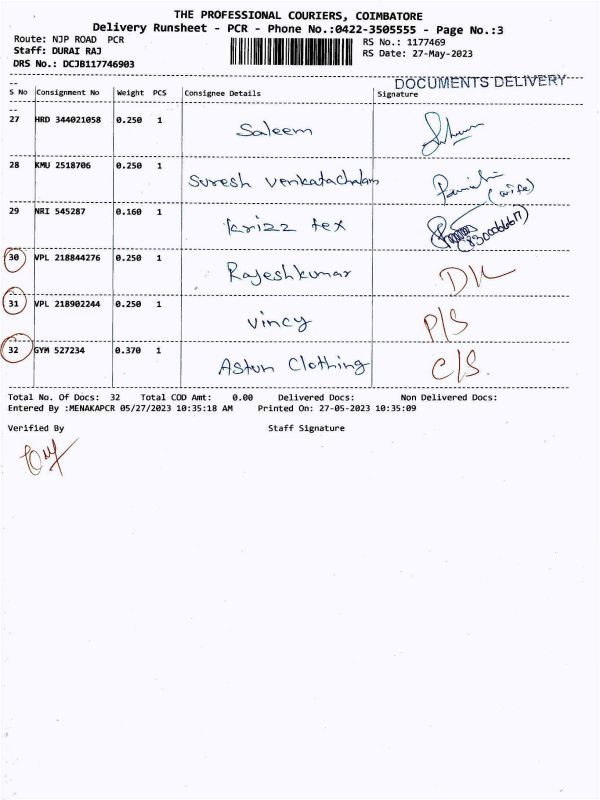 THE PROFESSIONAL COURIERS, COIMBATORE
Delivery Runsheet - PCR - Phone No.:0422-3505555 - Page No.:3
Route: NJP ROAD PCR
RS No.: 1177469
Staff: DURAI RAJ
RS Date: 27-May-2023
DRS No.: DCJB117746903
DOCUMENTS DELIVERY
S No Consignment No Weight PCS Consignee Details Signature
27 HRD 344021058 0.250 1 Saleem
28 KMU 2518706 0.250 1 Suresh Venkatachalam (wife)
29 NRI 545287 0.160 1 krizz tex
30 VPL 218844276 0.250 1 Rajeshkumar D/L
31 VPL 218902244 0.250 1 Vincy P/S
32 GYM 527234 0.370 1 Astun Clothing C/S
Total No. Of Docs: 32 Total COD Amt: 0.00 Delivered Docs: Non Delivered Docs:
Entered By :MENAKAPCR 05/27/2023 10:35:18 AM Printed On: 27-05-2023 10:35:09
Verified By Staff Signature